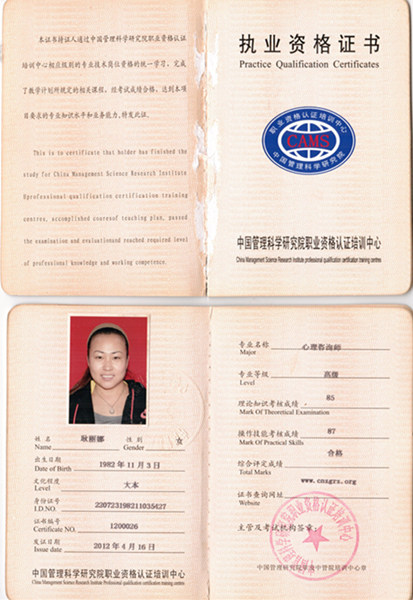 本证书持证人通过中国管理科学研究院职业资格认证
培训中心相应级别的专业技术岗位资格的统一学习，完成
了教学计划所规定的相关课程，经考试成绩合格，达到本项
目要求的专业知识水平和业务能力，特发此证。
This is to certificate that holder has finished the
study for China Management Science Research Institute
Oprofessional qualification certification training
centres, accomplished coursesof teaching plan, passed
the examination and evaluationand reached required level
of professional knowledge and working competence.
执业资格证书
Practice Qualification Certificates
职业资格认证培训中心
CAMS
中国管理科学研究院
中国管理科学研究院职业资格认证培训中心
China Management Science Research Institute professional qualification certification training centres
姓名 耿丽娜 性别 女
Name Gender
出生日期 1982 年 11 月 3 日
Date of Birth
文化程度 大本
Level
身份证号 220723198211035427
I.D.NO.
证书编号 1200026
Certificate NO.
发证日期 2012 年 4 月 16 日
Issue date
中国管理科学研究院职业资格认证培训中心
China Management Science Research Institute professional qualification certification training centres
专业名称 心理咨询师
Major
专业等级 高级
Level
理论知识考核成绩 85
Mark Of Theoretical Examination
操作技能考核成绩 87
Mark Of Practical Skills
综合评定成绩 合格
Total Marks
www.cnsgrz.org
证书查询网址
Website
主管及考试机构签章：